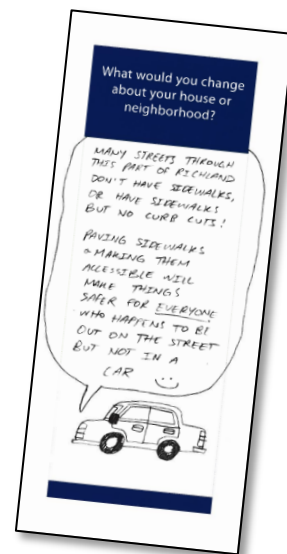 What would you change
about your house or
neighborhood?
MANY STREETS THROUGH
THIS PART OF RICHLAND
DON'T HAVE SIDEWALKS,
OR HAVE SIDEWALKS
BUT NO CURB CUTS!
PAVING SIDEWALKS
& MAKING THEM
ACCESSIBLE WILL
MAKE THINGS
SAFER FOR EVERYONE
WHO HAPPENS TO BE
OUT ON THE STREET
BUT NOT IN A
CAR